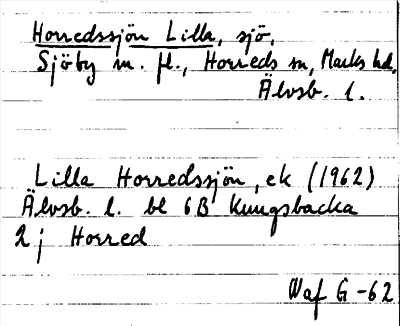 Horredssjön Lilla, sjö,
Sjöby m. fl., Horreds sn, Marks hd,
Älvsb. l.
Lilla Horredssjön, ek (1962)
Älvsb. l. bl 6B Kungsbacka
2j Horred
Waf G -62